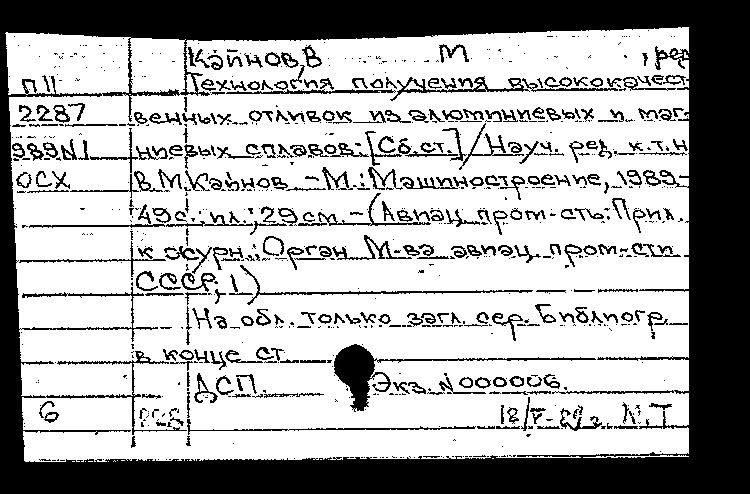 Кайнов, В М , ред
П 11 Технология получения высококачест-
2287 венных отливок из алюминиевых и маг-
989N1 ниевых сплавов: [Сб.ст.] / Науч. ред. к.т.н
ОСХ В.М.Кайнов. -М.: Машиностроение, 1989.-
49с.: ил.; 29см. - (Авиац. пром-сть: Прил.
к журн.: Орган М-ва авиац. пром-сти
СССР; 1)
На обл. только загл. сер. Библиогр.
в конце ст.
ДСП. Экз. N 000006.
6 N.T